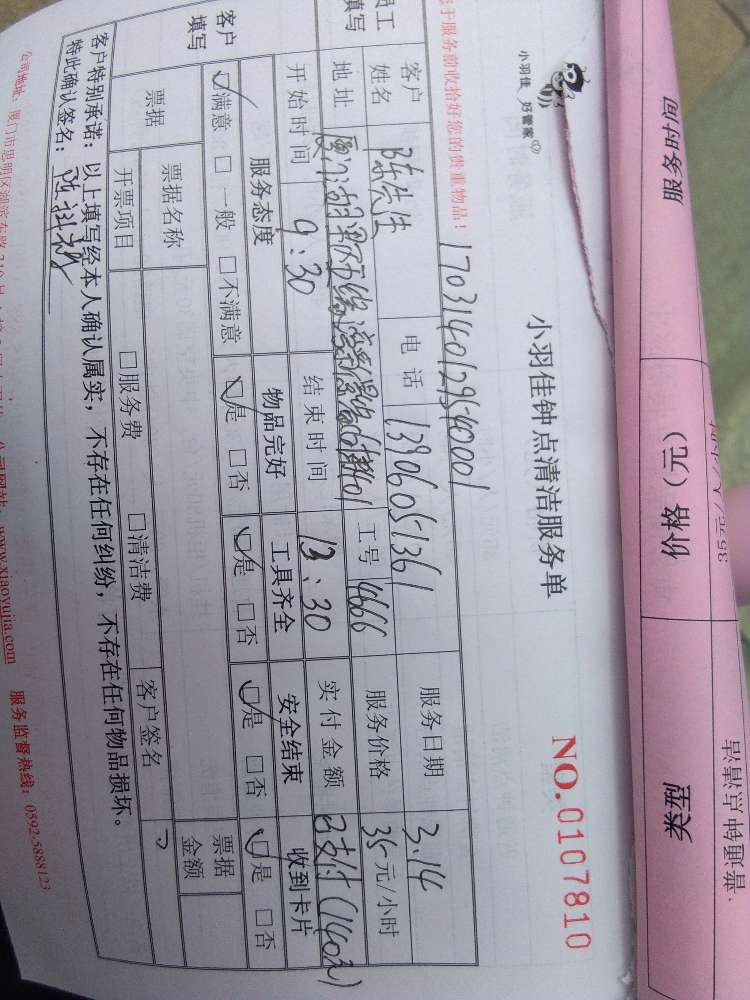 服务时间
价格（元）
类型
35元/
普通钟点清洁
小羽佳 好管家
小羽佳钟点清洁服务单
NO.0107810
于服务前收拾好您的贵重物品！
1703140129540001
员工填写
客户姓名
陈先生
电话
13906051361
服务日期
3.14
地址
工号
4666
服务价格
35元/小时
开始时间
9:30
结束时间
13:30
实付金额
已支付(140元)
客户填写
服务态度
物品完好
工具齐全
安全结束
收到卡片
☑满意 □一般 □不满意
☑是 □否
☑是 □否
☑是 □否
☑是 □否
票据
票据名称
票据金额
开票项目
□服务费 □清洁费
客户签名
客户特别承诺：以上填写经本人确认属实，不存在任何纠纷，不存在任何物品损坏。
特此确认签名：
公司地址：厦门市思明区湖滨东路
公司网站：www.xiaoyujia.com
服务监督热线：0592-5888123